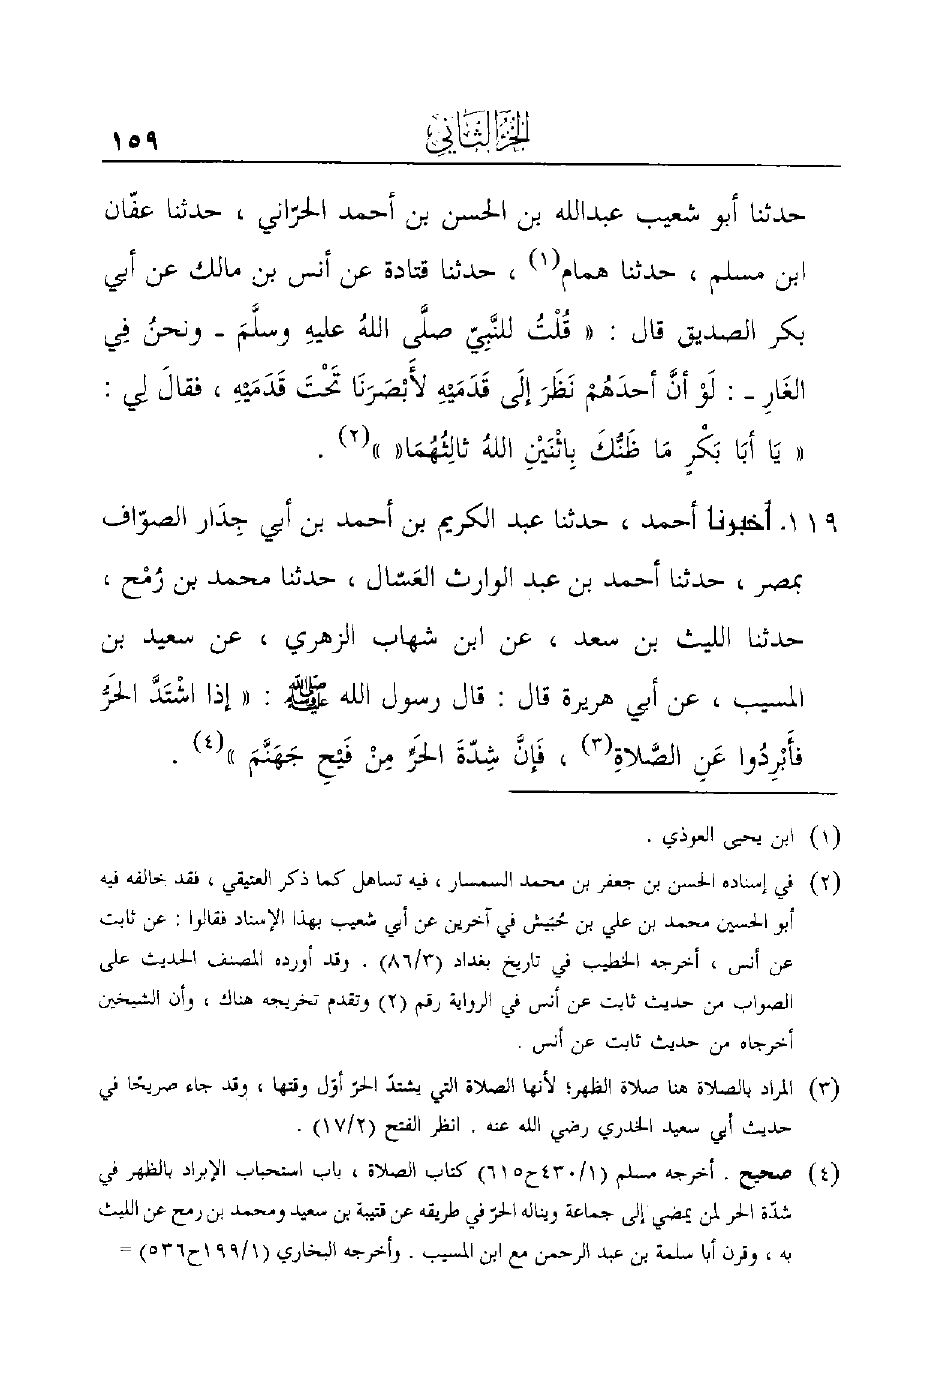 الجزء الثاني ١٥٩
حدثنا أبو شعيب عبدالله بن الحسن بن أحمد الحرّاني ، حدثنا عفّان
ابن مسلم ، حدثنا همام(١) ، حدثنا قتادة عن أنس بن مالك عن أبي
بكر الصديق قال : « قُلْتُ للنَّبِيّ صلَّى اللهُ عليهِ وسلَّمَ ـ ونحنُ فِي
الغَارِ ـ : لَوْ أنَّ أحدَهُمْ نَظَرَ إلَى قَدَمَيْهِ لأَبْصَرَنَا تَحْتَ قَدَمَيْهِ ، فقالَ لِي :
« يَا أبَا بَكْرٍ مَا ظَنُّكَ بِاثْنَيْنِ اللهُ ثالِثُهُمَا« »(٢) .
١١٩. أخبرنا أحمد ، حدثنا عبد الكريم بن أحمد بن أبي جِدَار الصوّاف
بمصر ، حدثنا أحمد بن عبد الوارث العَسّال ، حدثنا محمد بن رُمْح ،
حدثنا الليث بن سعد ، عن ابن شهاب الزهري ، عن سعيد بن
المسيب ، عن أبي هريرة قال : قال رسول الله ﷺ : « إذا اشْتَدَّ الحَرُّ
فأَبْرِدُوا عَنِ الصَّلاةِ(٣) ، فَإنَّ شِدّةَ الحَرِّ مِنْ فَيْحِ جَهَنَّمَ »(٤) .
(١) ابن يحيى العوذي .
(٢) في إسناده الحسن بن جعفر بن محمد السمسار ، فيه تساهل كما ذكر العتيقي ، فقد خالفه فيه
أبو الحسين محمد بن علي بن حُبَيْش في آخرين عن أبي شعيب بهذا الإسناد فقالوا : عن ثابت
عن أنس ، أخرجه الخطيب في تاريخ بغداد (٨٦/٣) . وقد أورده المصنف الحديث على
الصواب من حديث ثابت عن أنس في الرواية رقم (٢) وتقدم تخريجه هناك ، وأن الشيخين
أخرجاه من حديث ثابت عن أنس .
(٣) المراد بالصلاة هنا صلاة الظهر؛ لأنها الصلاة التي يشتدّ الحرّ أوّل وقتها ، وقد جاء صريحًا في
حديث أبي سعيد الخدري رضي الله عنه . انظر الفتح (١٧/٢) .
(٤) صحيح . أخرجه مسلم (٤٣٠/١ح٦١٥) كتاب الصلاة ، باب استحباب الإبراد بالظهر في
شدّة الحر لمن يمضي إلى جماعة ويناله الحرّ في طريقه عن قتيبة بن سعيد ومحمد بن رمح عن الليث
به ، وقرن أبا سلمة بن عبد الرحمن مع ابن المسيب . وأخرجه البخاري (١٩٩/١ح٥٣٦) =